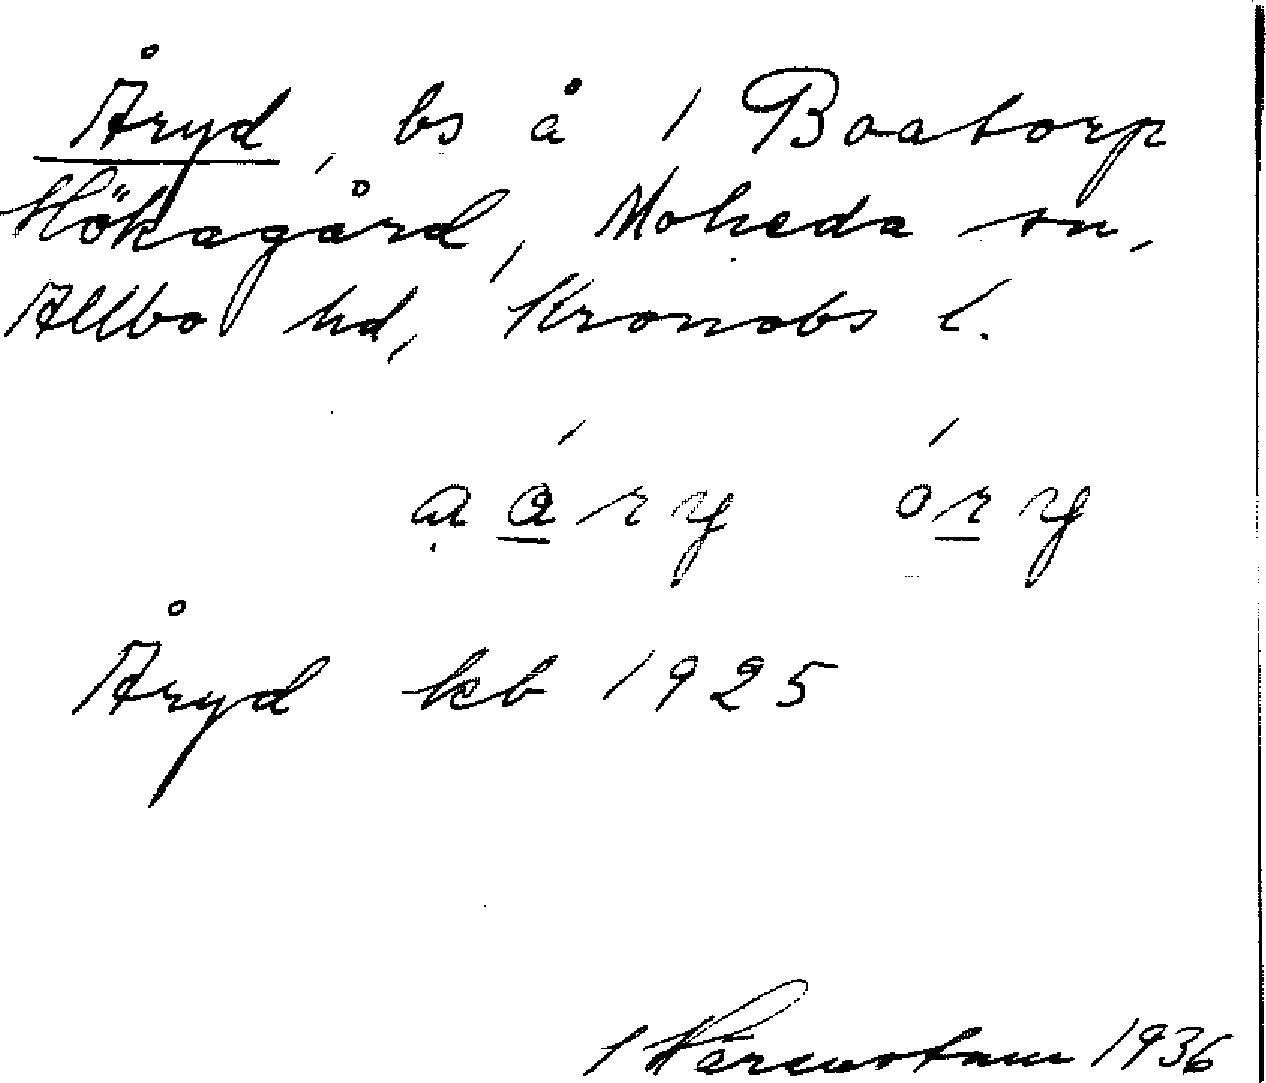 Åryd, bs å 1 Boatorp
Hökagård, Moheda sn,
Allbo hd, Kronobs l.
aáry óry
Åryd kb 1925
1936